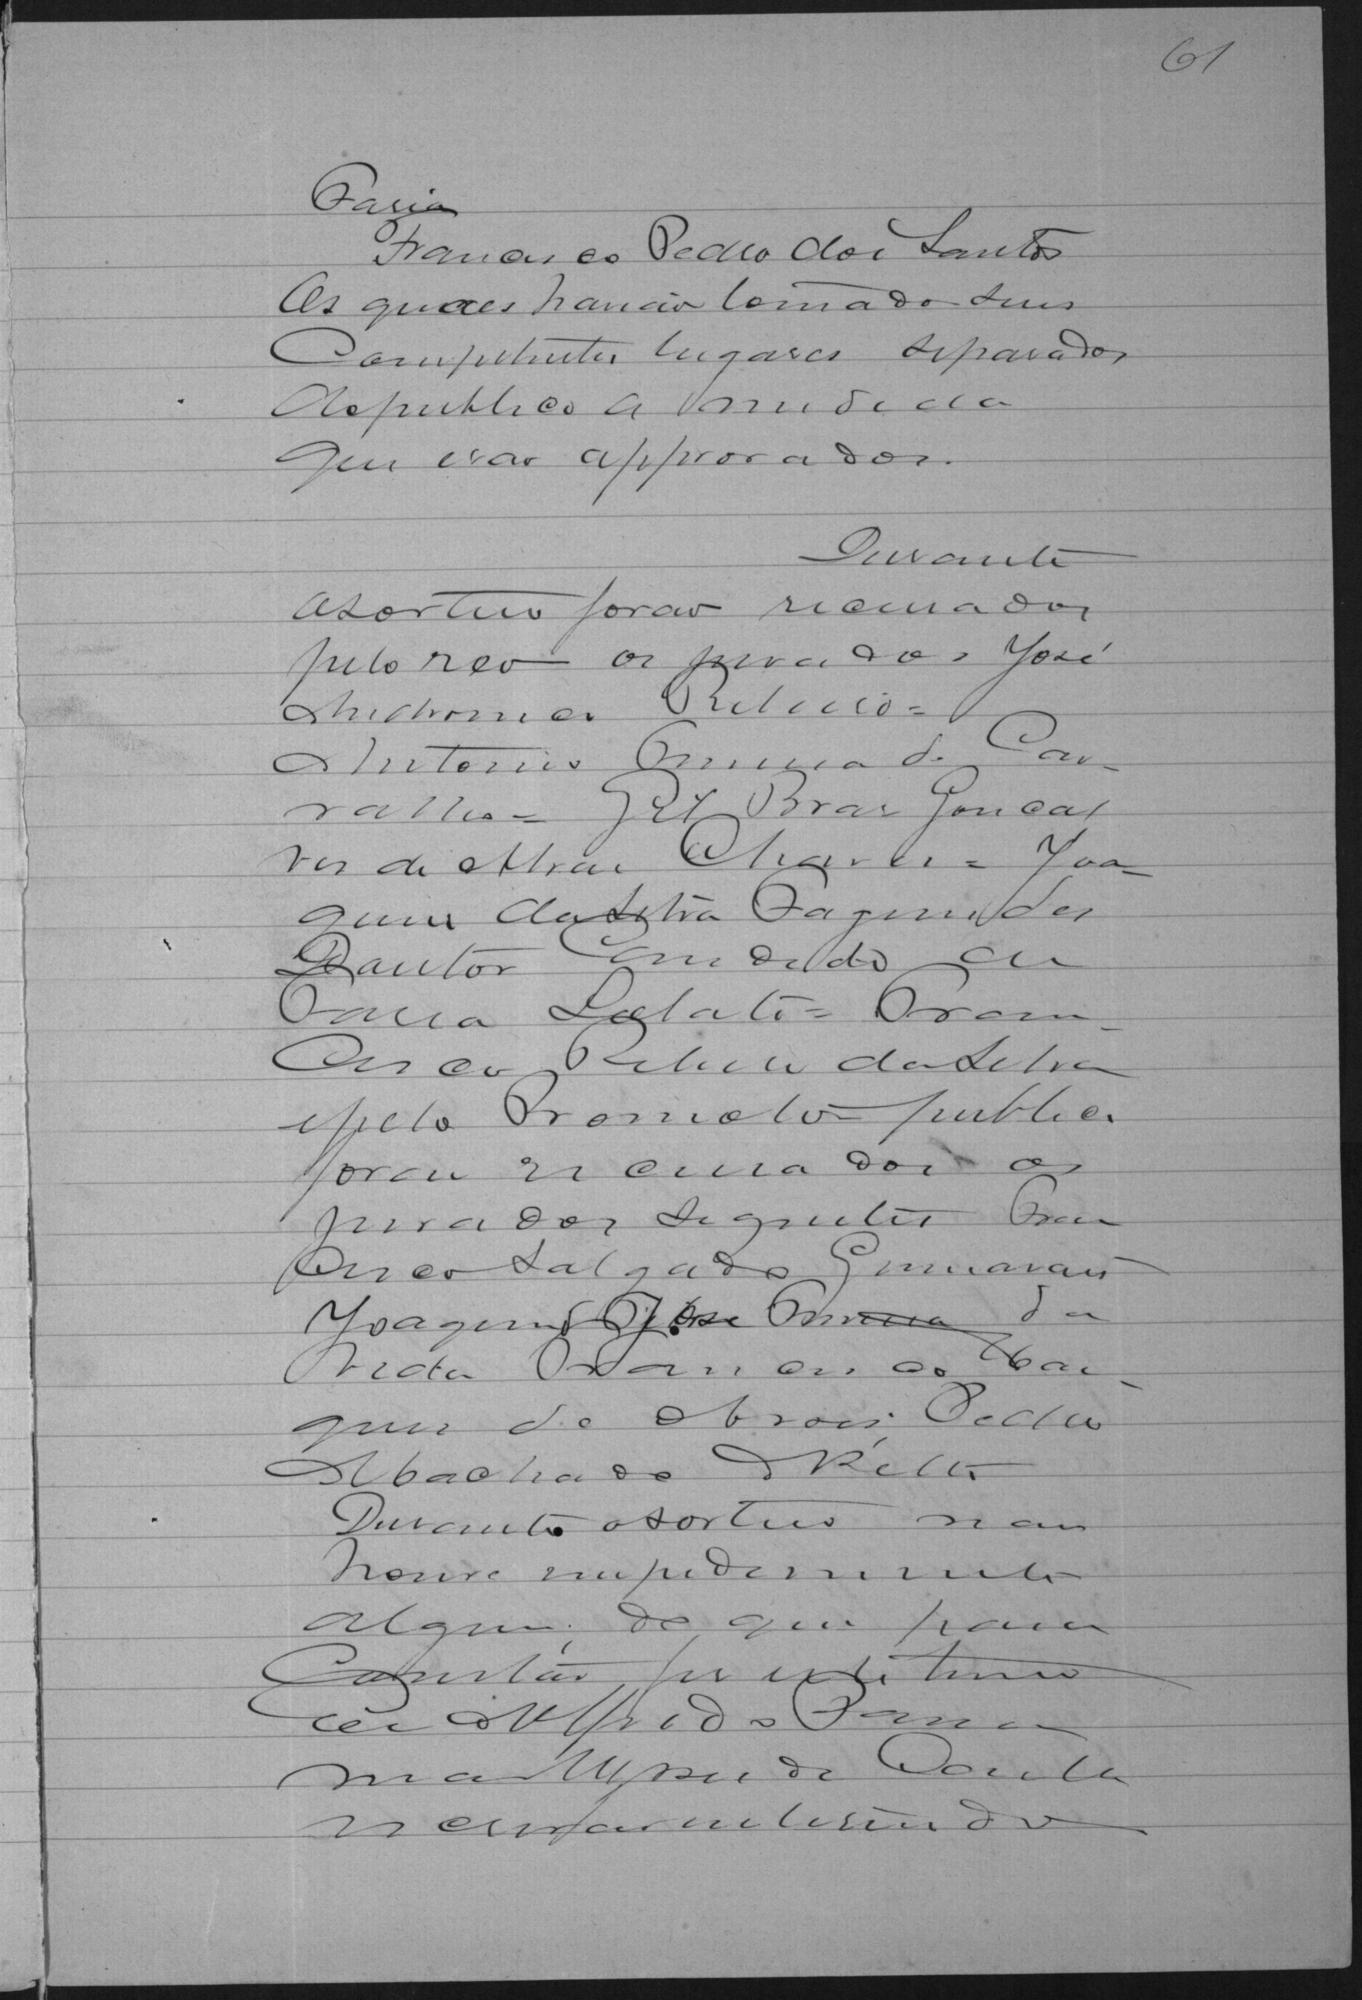 61
Faria
Francisco Pedro dos Santos
Os quaes haviáo tomado seus
Competentes lugares separados
do publico a medida
que erao approvados.
Durante
osorteio forao recusados
pelo reo os jurados José
Ribeiro=
Antonio Pereira de Car-
valho= Gil Bras Goncal
ves de Chaves= Joa-
quim da Silva Fagundes
Doutor Candido de
Faria Lobato= Fran-
cisco Ribeiro da Silva
epelo Promotor publico
forao recusados os
jurados seguintes Fran
cisco Salgado Guimaraes
Joaquim José Pereira da
Francisco Mar-
ques de Pedro
Machado
Durante osorteio nao
houve impedimento
algum, do que para
Constar fis este termo
Eu Alfredo